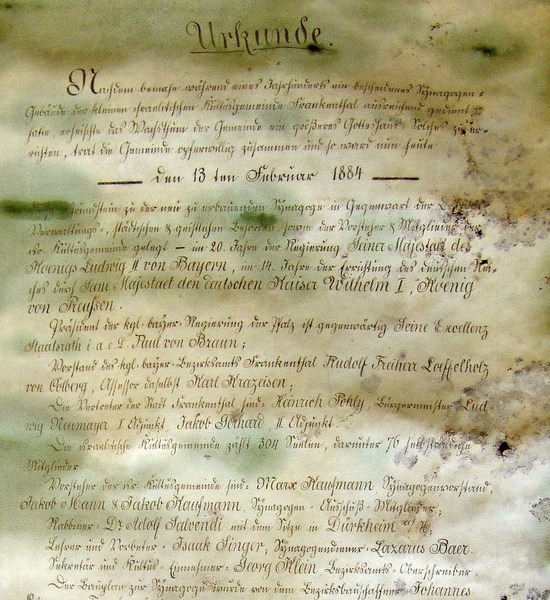 Urkunde.
Nachdem beinahe während eines Jahrhunderts ein bescheidenes Synagogen-
Gebäude der kleinen israelitischen Kultusgemeinde Frankenthal ausreichend gedient
hatte, erheischte das Wachsthum der Gemeinde ein größeres Gotteshaus. Solches zu er-
richten, trat die Gemeinde opferwillig zusammen und so ward nun heute
— den 13ten Februar 1884 —
Grundstein zu der neu zu erbauenden Synagoge in Gegenwart der
Verwaltungs-, städtischen & geistlichen Behörden, sowie der Vorsteher & Mitglieder der
isr. Kultusgemeinde gelegt — im 20. Jahre der Regierung Seiner Majestaet des
Koenigs Ludwig II von Bayern, im 14. Jahre der Errichtung des deutschen Rei-
ches durch Seine Majestaet den deutschen Kaiser Wilhelm I, Koenig
von Preussen.
Präsident der kgl. bayer. Regierung der Pfalz ist gegenwärtig Seine Excellenz
Staatsrath i. a. o. D. Paul von Braun;
Vorstand des kgl. bayer. Bezirksamts Frankenthal Rudolf Freiherr Loeffelholz
von Colberg, Assessor daselbst Karl Krazeisen;
Die Vertreter der Stadt Frankenthal sind: Heinrich Bürgermeister, Lud
wig Neumayer I Adjunkt, Jakob Gerhard, II Adjunkt.
Die israelitische Kultusgemeinde zählt 304 Seelen, darunter 76 selbständige
Mitglieder
Vorsteher der isr. Kultusgemeinde sind: Marx Kaufmann Synagogenvorstand,
Jakob Mann & Jakob Kaufmann, Synagogen-Ausschuß-Mitglieder;
Rabbiner: Dr. Adolf Salvendi mit dem Sitze in Dürkheim a/H;
Lehrer und Vorbeter: Isaak Singer, Synagogendiener: Lazarus Baer.
Sekretär und Kultus-Einnehmer: Georg Klein, Bezirksamts-Oberschreiber.
Der Bauplan zur Synagoge wurde von dem Bezirksbauschaffner Johannes